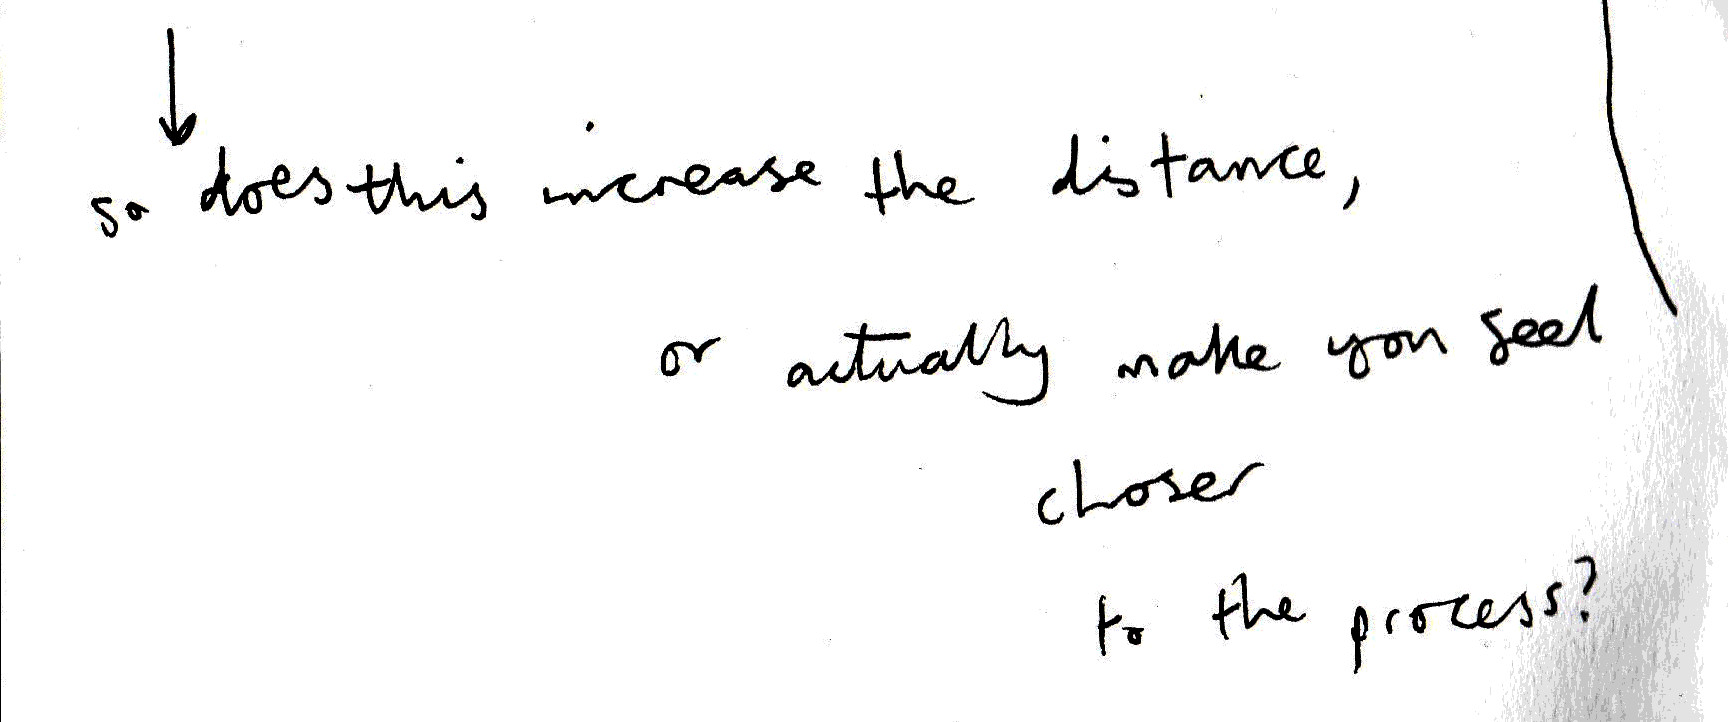 so does this increase the distance,
or actually make you feel
closer
to the process?